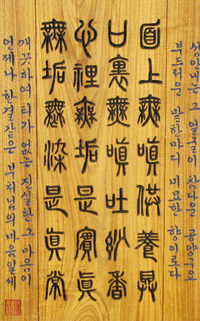 성 안내는 그 얼굴이 참다운 공양구요
부드러운 말한마디 미묘한 향이로다
面上無嗔供養具
口裏無嗔吐妙香
心裡無垢是眞
無垢無染是眞常
깨끗하여 티가 없는 진실한 그 마음이
언제나 한결같은 부처님의 마음일세